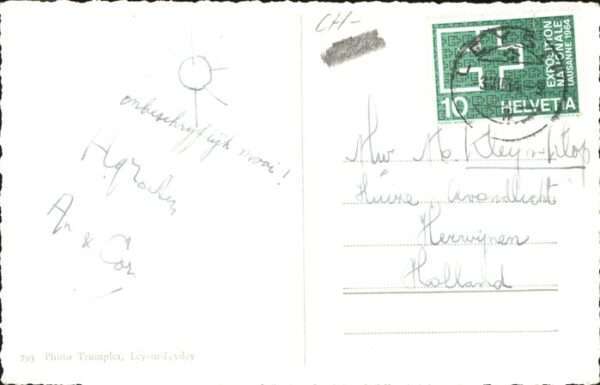 CH-
EXPOSITION
NATIONALE
LAUSANNE 1964
10 HELVETIA
onbeschrijflijk mooi!
An & Cor
Mw. A. Kleyn-Klop
Huize Avondlicht
Herwijnen
Holland
795 Photo Transplex, Ley-s-Leysley